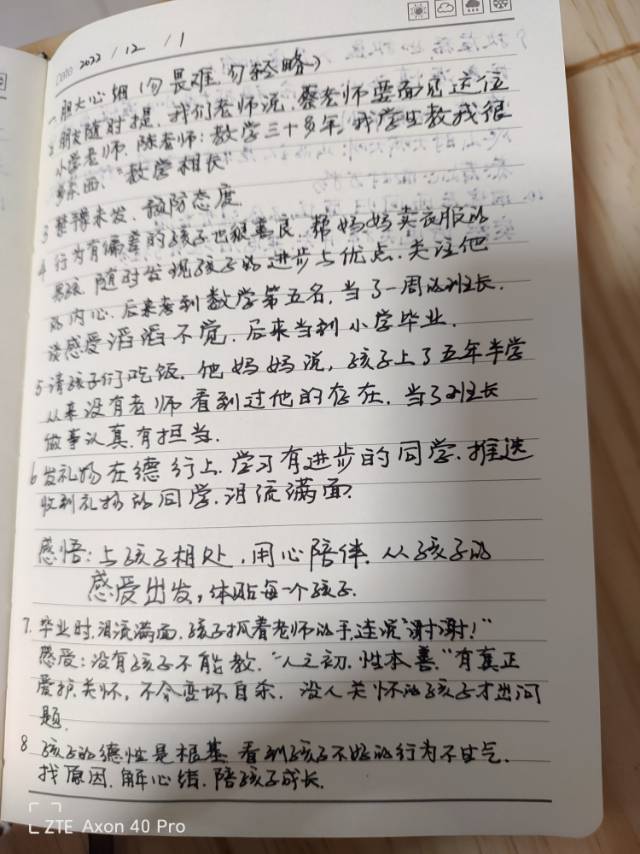 DATE 2022 / 12 / 1
一、胆大心细(勿畏难,勿轻略)
2 朋友随时提,我们老师说,蔡老师要面见这位
小学老师,陈老师:教学三十多年,我学生教我很
多东西,“教学相长”
3 整得未发、预防态度
4 行为有偏差的孩子也很善良,帮妈妈卖衣服的
男孩,随时发现孩子的进步与优点,关注他
的内心,后来考到数学第五名,当了一周的班长,
感受滔滔不觉,后来当到小学毕业.
5 请孩子们吃饭,他妈妈说,孩子上了五年半学
从来没有老师看到过他的存在,当了班长
做事认真,有担当.
6 发礼物在德行上,学习有进步的同学,推选
收到礼物的同学,泪流满面.
感悟:与孩子相处,用心陪伴,从孩子的
感受出发,体贴每一个孩子.
7. 毕业时,泪流满面,孩子抓着老师的手,连说“谢谢!”
感受:没有孩子不能教,“人之初,性本善,”有真正
爱护,关怀,不会变坏自杀.没人关怀的孩子才出问
题.
8 孩子的德性是根基,看到孩子不好的行为不生气,
找原因,解心结,陪孩子成长.
ZTE Axon 40 Pro